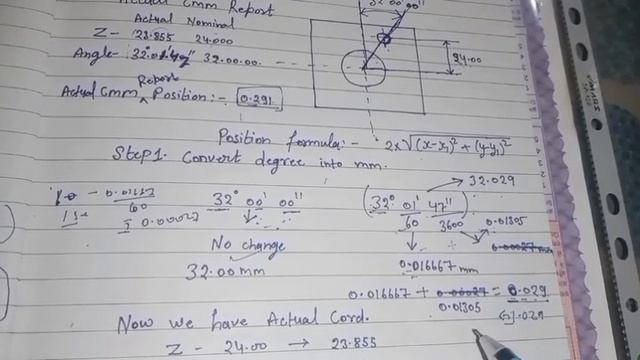 Actual Cmm Report
Actual Nominal
Z - 23.855 24.000
Angle - 32°01'47" 32.00.00.
Report
Actual Cmm ^ Position:- 0.291
32°00'00"
24.00
Position formula:- 2×√(x-x₁)²+(y-y₁)²
Step 1. Convert degree into mm.
32.029
32° 00' 00"
(32° 01' 47")
60 3600
0.01305
0.00027 mm
No change
32.00 mm
0.016667 mm
0.016667 + 0.00027 = 0.029
0.01305
Now we have Actual Cord.
Z - 24.00 → 23.855